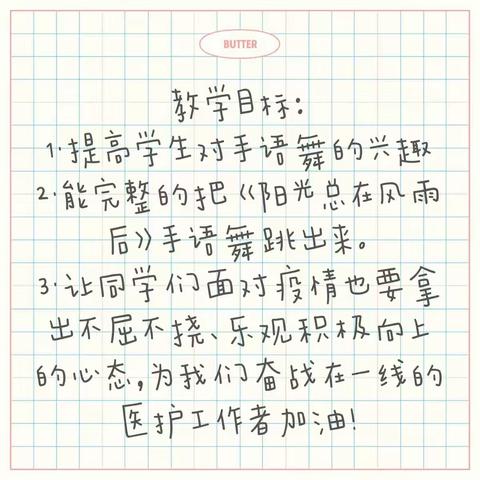 BUTTER
教学目标:
1.提高学生对手语舞的兴趣
2.能完整的把《阳光总在风雨
后》手语舞跳出来。
3.让同学们面对疫情也要拿
出不屈不挠、乐观积极向上
的心态,为我们奋战在一线的
医护工作者加油!